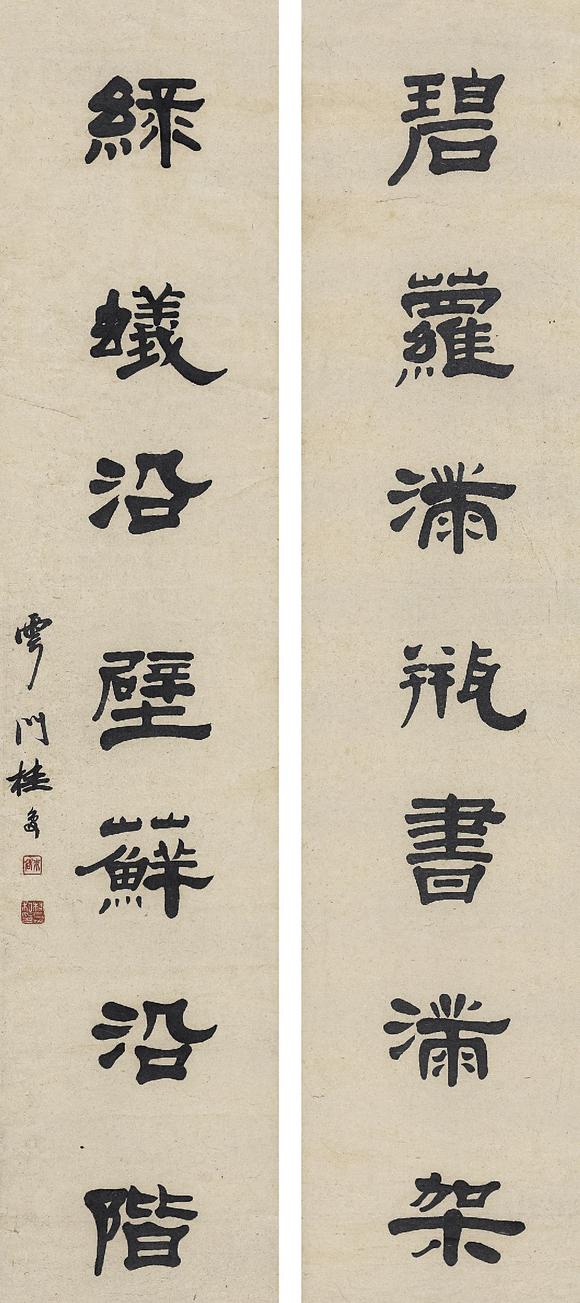 碧蘿滿瓶書滿架
綠蟻沿壁蘇沿階
雲門桂